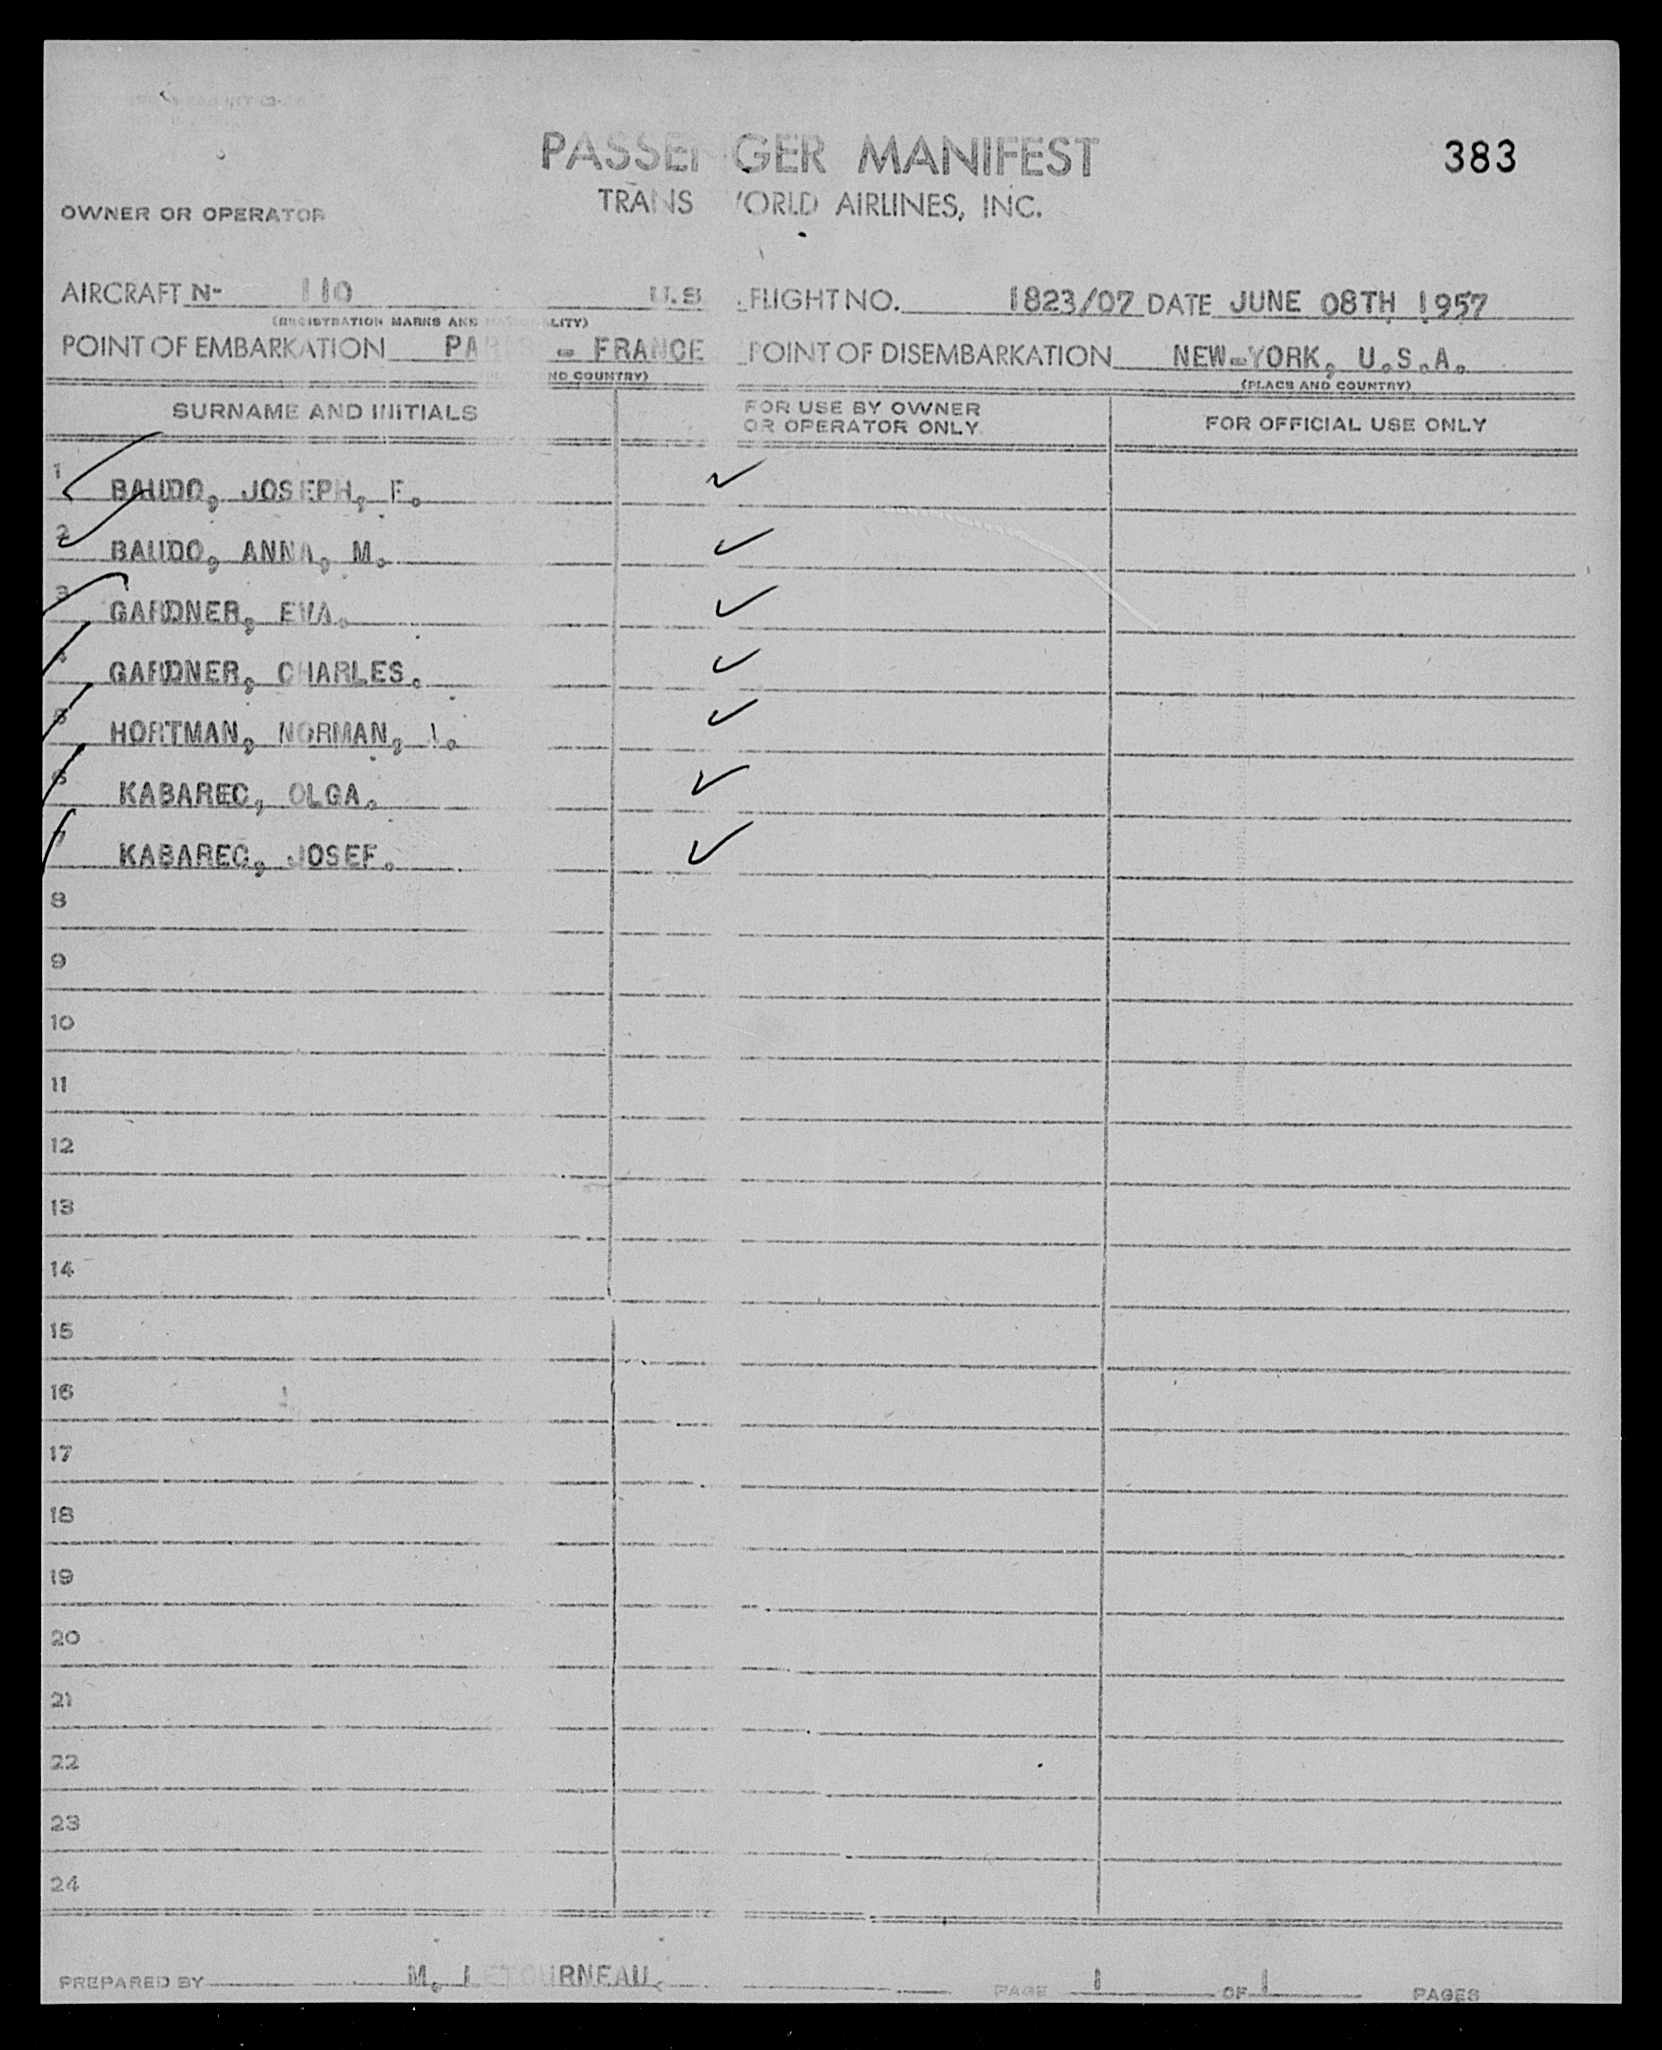 PASSENGER MANIFEST
383
TRANS WORLD AIRLINES, INC.
OWNER OR OPERATOR
AIRCRAFT N- 110 U.S FLIGHT NO. 1823/07 DATE JUNE 08TH 1957
(REGISTRATION MARKS AND NATIONALITY)
POINT OF EMBARKATION PARIS - FRANCE POINT OF DISEMBARKATION NEW-YORK, U.S.A.
(PLACE AND COUNTRY) (PLACE AND COUNTRY)
SURNAME AND INITIALS FOR USE BY OWNER OR OPERATOR ONLY FOR OFFICIAL USE ONLY
1 BAUDO, JOSEPH, F. ✓
2 BAUDO, ANNA, M. ✓
3 GARDNER, EVA. ✓
4 GARDNER, CHARLES. ✓
5 HORTMAN, NORMAN, ✓
6 KABAREC, OLGA. ✓
7 KABAREC, JOSEF. ✓
8
9
10
11
12
13
14
15
16
17
18
19
20
21
22
23
24
PREPARED BY M. LETOURNEAU. PAGE 1 OF 1 PAGES